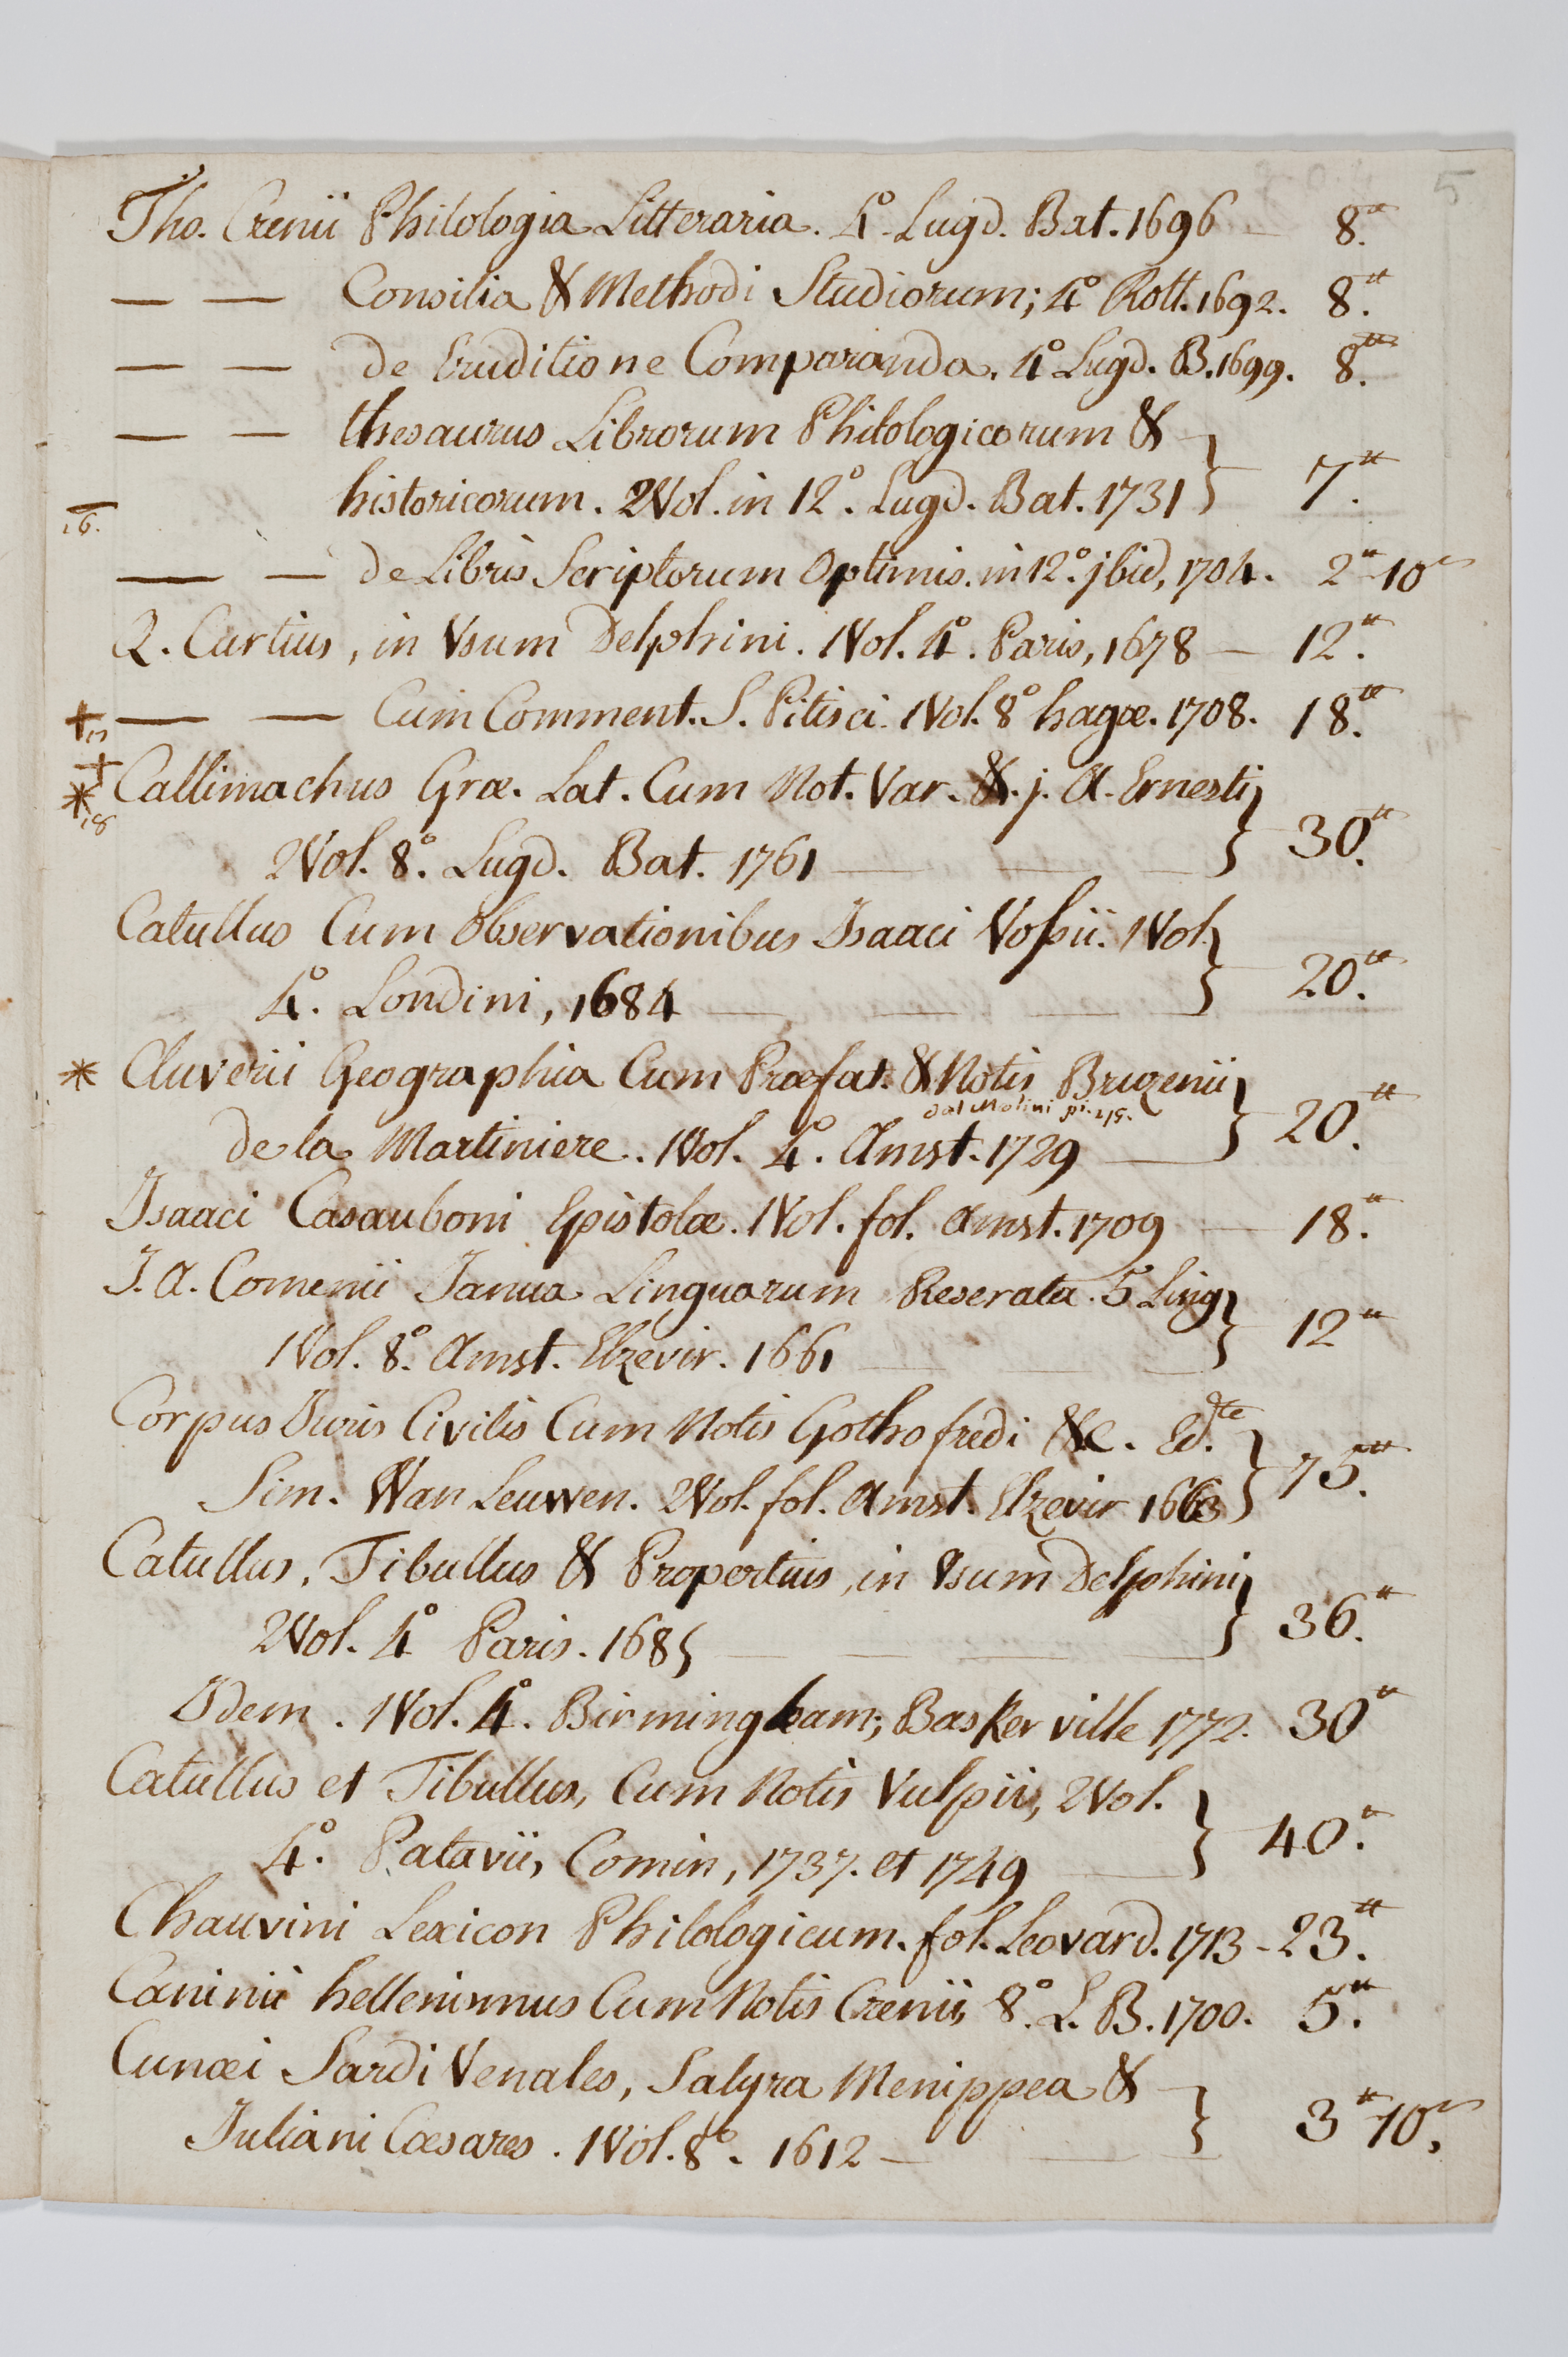 5
Tho. Crenii Philologia Litteraria. 4.º Lugd. Bat. 1696 — 8.tt
— — Consilia & Methodi Studiorum; 4º Rott. 1692. 8.tt
— — de Eruditione Comparanda. 4º Lugd. B. 1699. 8.tt
— — thesaurus Librorum Philologicorum &
historicorum. 2 Vol. in 12º. Lugd. Bat. 1731 } 7.tt
16.
— — de Libris Scriptorum Optimis. in 12º. jbid, 1704. 2tt 10s
Q. Curtius, in Vsum Delphini. 1 Vol. 4º. Paris, 1678 — 12.tt
+ — — Cum Comment. S. Pitisci. 1 Vol. 8º hagæ. 1708. 18.tt
17
+
* Callimachus Græ. Lat. Cum Not. Var. & j. A. Ernesti
18
2 Vol. 8º. Lugd. Bat. 1761 — — — } 30.tt
Catullus Cum Observationibus Isaaci Vossii. 1 Vol.
4º. Londini, 1684 — — — } 20.tt
* Cluverii Geographia Cum Præfat. & Notis Bruzenii
dal Molini
de la Martiniere. 1 Vol. 4º. Amst. 1729 — } 20.tt
Isaaci Casauboni Epistolæ. 1 Vol. fol. Amst. 1709 — 18.tt
J. A. Comenii Janua Linguarum Reserata. 5 Ling
1 Vol. 8º. Amst. Elzevir. 1661 — — } 12tt
Corpus Juris Civilis Cum Notis Gothofredi &c. Ed.te
Sim. Van Leuwen. 2 Vol. fol. Amst. Elzevir 1663 } 75.tt
Catullus, Tibullus & Propertius, in Vsum Delphini
2 Vol. 4º Paris. 1685 — — — — } 36.tt
Idem. 1 Vol. 4º. Birmingham; Baskerville 1772. 30tt
Catullus et Tibullus, Cum Notis Vulpii, 2 Vol.
4º. Patavii, Comin, 1737. et 1749 — } 40.tt
Chauvini Lexicon Philologicum. fol. Leovard. 1713 - 23.tt
Caninii hellenismus Cum Notis Crenii, 8º. L. B. 1700. 5.tt
Cunæi Sardi Venales, Satyra Menippea &
Juliani Cæsares. 1 Vol. 8º. 1612 — — } 3tt 10s.